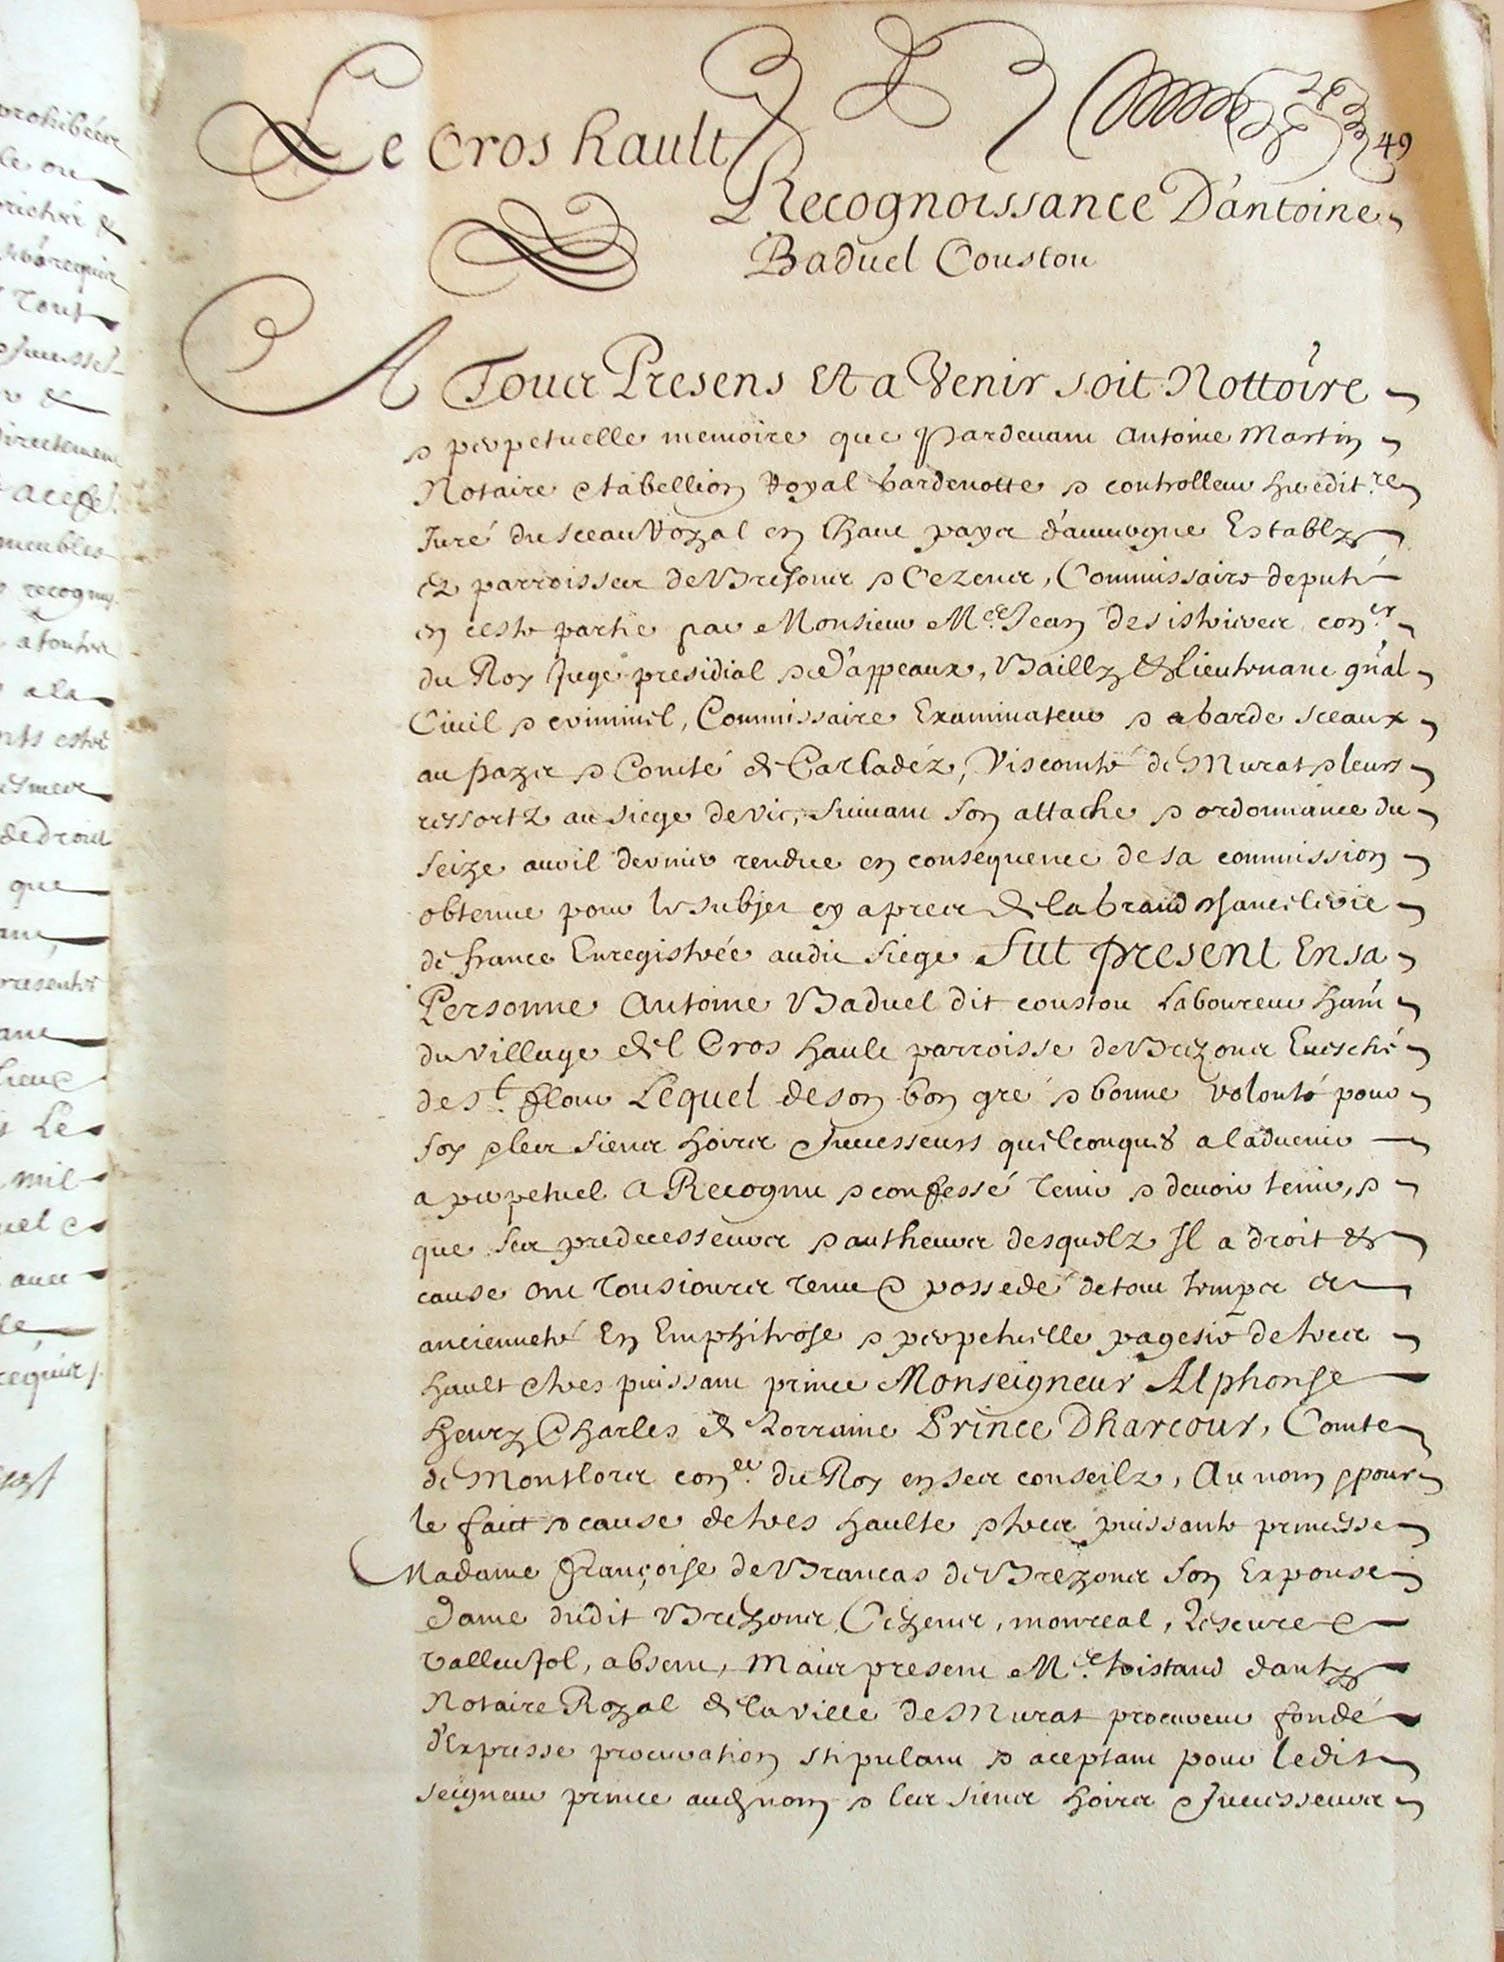 prohibeer
le ou
49
Le Cros hault
Recognoissance D'antoine
Baduel Coustou
A Tous Presens Et a Venir soit Nottoire
& perpetuelle memoire que Pardevant Antoine Martin
Notaire & tabellion Royal gardenotte & controlleur heredit.re
Juré du sceau Royal en hault pays d'auvergne Estably
es parroisses de Bresons & Cezens, Commissaire deputé
en ceste partie par Monsieur M.e Jean Desistrieres con.er
du Roy Juge presidial & d'appeaux, Bailly & Lieutenant gñal
Civil & criminel, Commissaire Examinateur & garde sceaux
au pays & Comté de Carladéz, Viscomté de Murat & leurs
ressortz au siege de vic, suivant son attache & ordonnance du
seize avril dernier rendue en consequence de sa commission
obtenue pour le subjet cy apres de la grand chancelerie
de france Enregistrée audit siege Fut present En sa
Personne Antoine Baduel dit coustou Laboureur hañ
du village del Cros hault parroisse de Brezons Evesché
de S.t flour Lequel de son bon gré & bonne volonté pour
soy & les siens hoirs & successeurs quelconques a ladvenir
a perpetuel A Recognu & confessé tenir & devoir tenir, &
que ses predecesseurs & autheurs desquelz Il a droit &
cause ont tousiours tenu & possedé de tout temps &
ancienneté En Emphitose & perpetuelle pagesie de tres
hault & tres puissant prince Monseigneur Alphonse
Henry Charles de Lorraine Prince Dharcour, Comte
de Montlors con.er du Roy en ses conseilz, Au nom & pour
le faict & cause de tres haulte & tres puissante princesse
Madame Françoise de Brancas de Brezons son Expouse
dame dudit Brezons, Cezens, monreal, Lescure &
valleujol, absent, Mais present M.e tristand danty
Notaire Royal de la ville de Murat procureur fondé
d'Expresse procuration stipulant & aceptant pour ledit
seigneur prince audit nom & les siens hoirs & successeurs